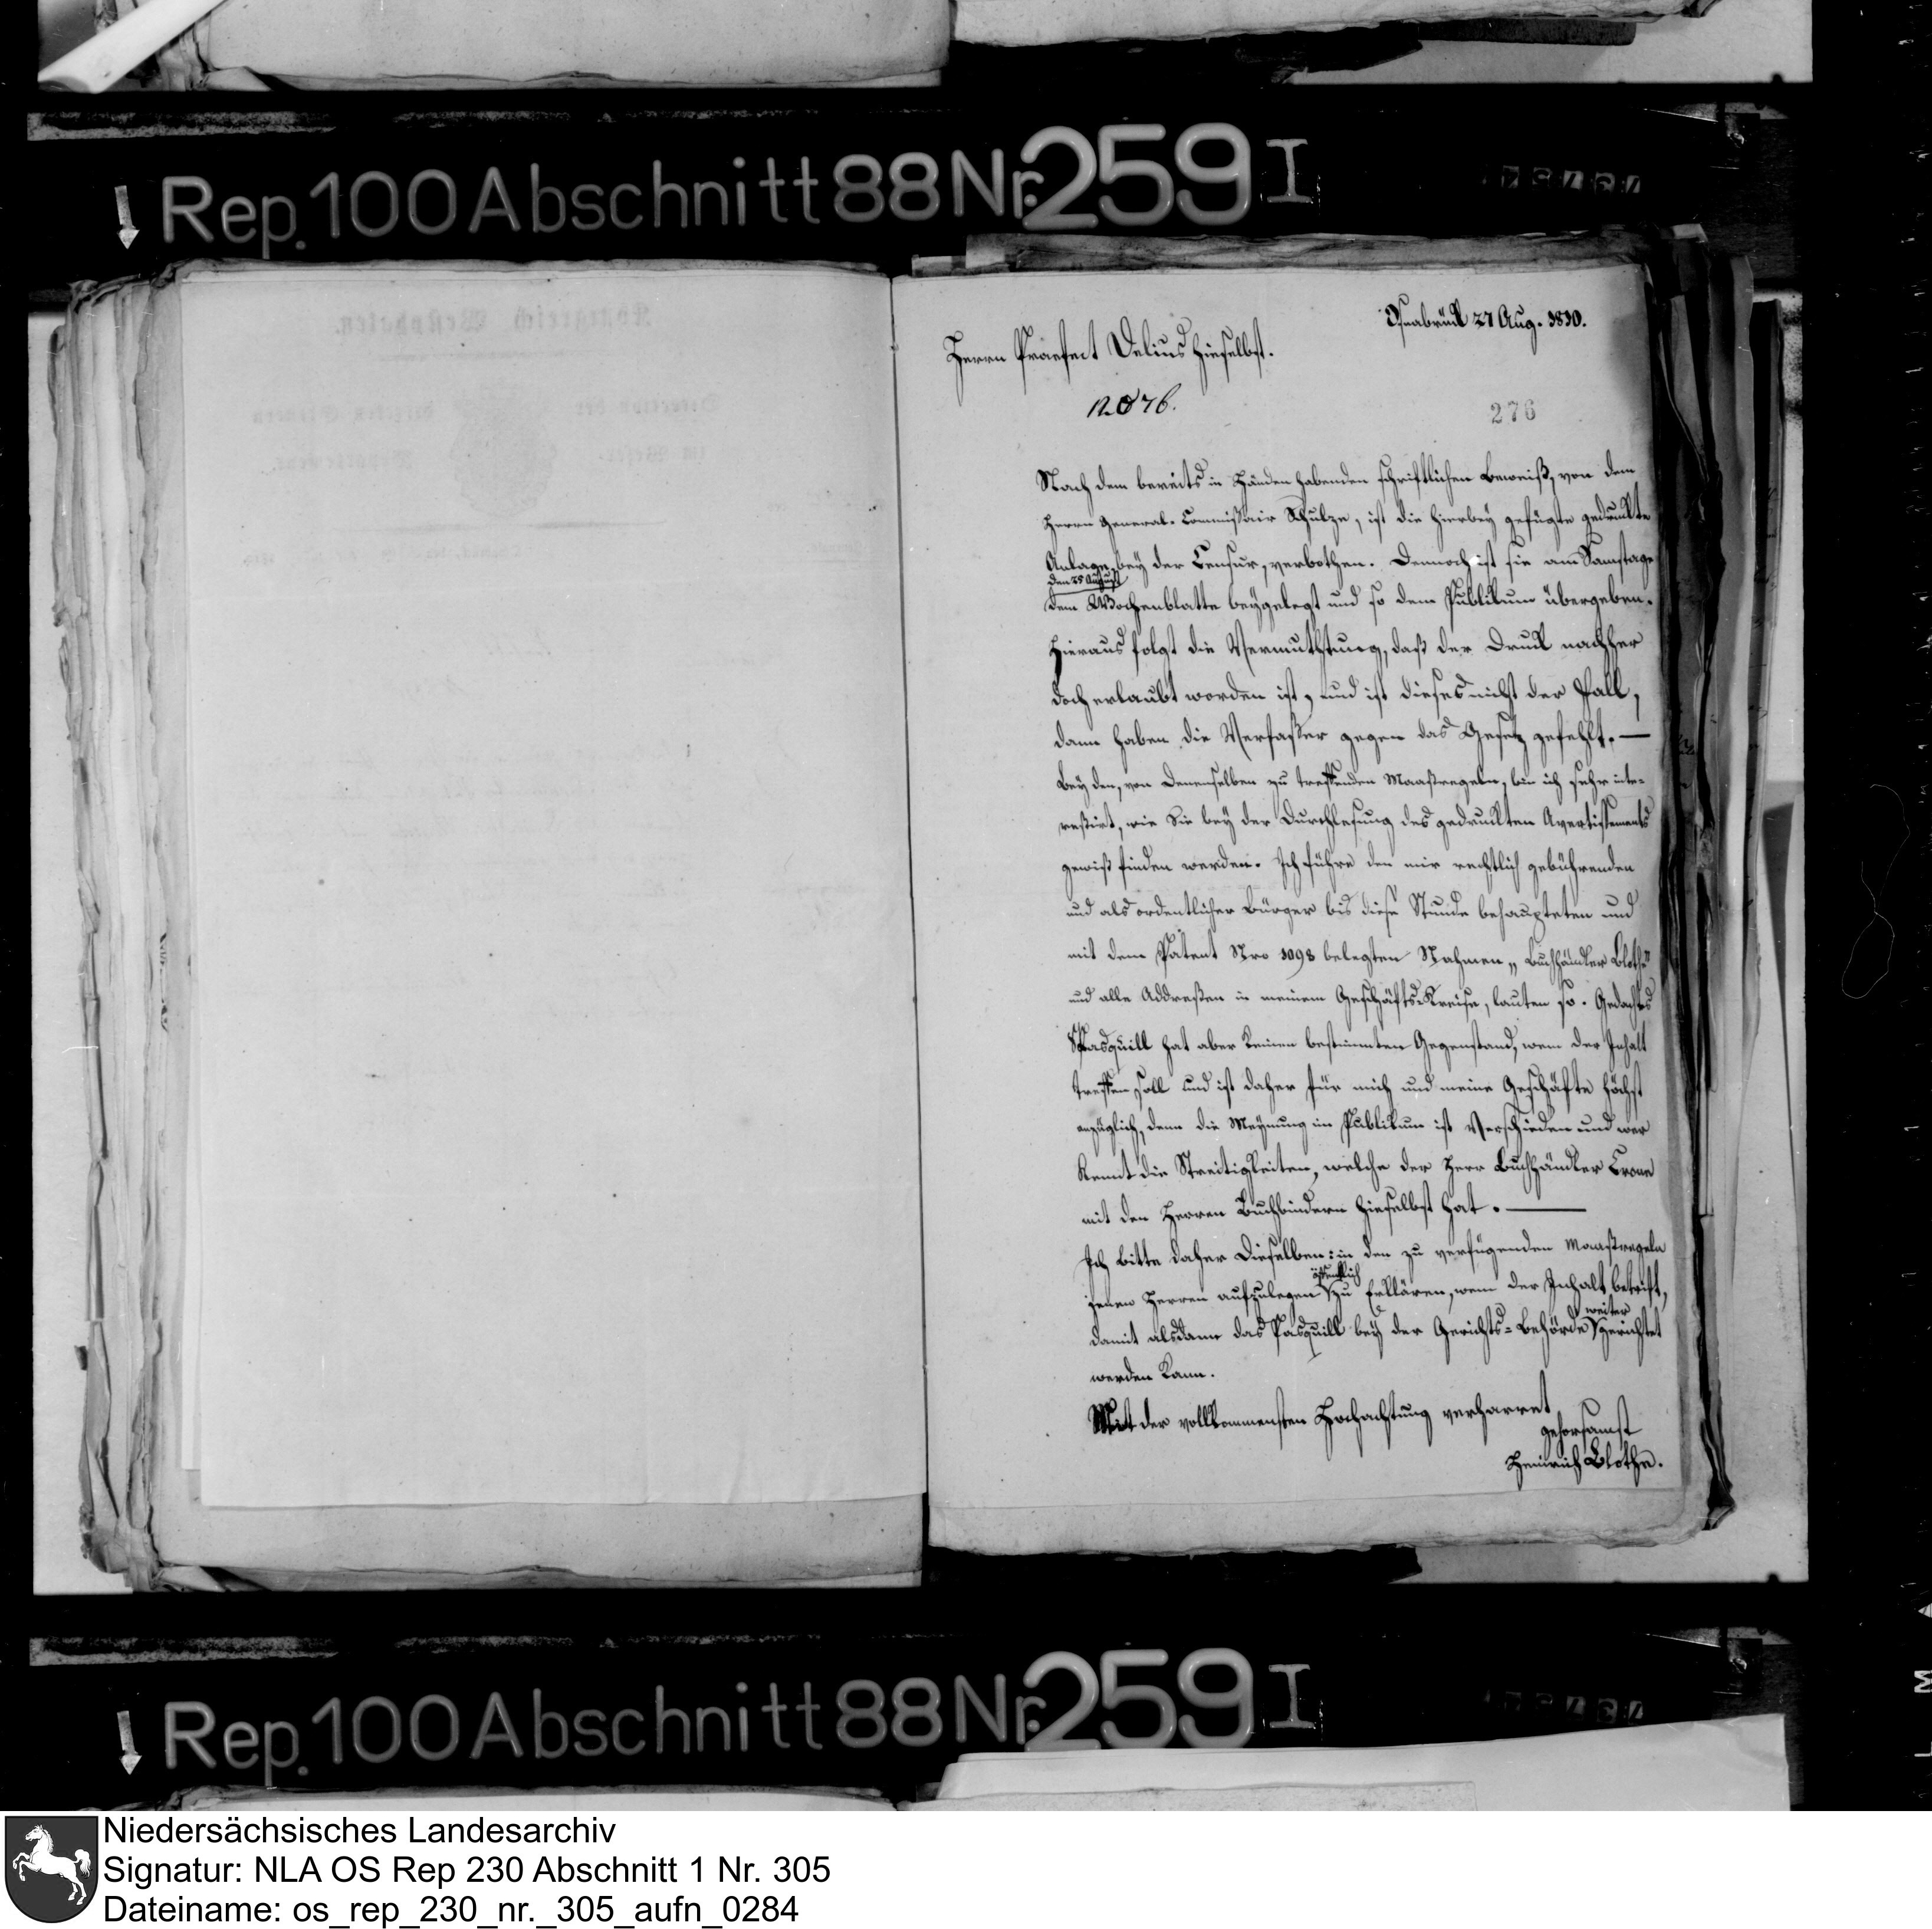 Rep. 100 Abschnitt 88 Nr. 259 I
Osnabrück 27 Aug. 1810.
Herrn Praefect Delius hieselbst.
276
Nach dem bereits in Händen habenden schriftlichen Beweiß, von dem
Herrn General-Commißair Schulze, ist die hierbey gefügte gedruckte
Anlage, bey der Censur, verbothen. Dennoch ist sie am Samstage
den 25 August
dem Wochenblatte beygelegt und so dem Publikum übergeben.
Hieraus folgt die Vermuthung, daß der Druck nachher
doch erlaubt worden ist, und ist dieses nicht der Fall,
dann haben die Verfaßer gegen das Gesetz gefehlt. —
Bey den, von Denenselben zu treffenden Maasregeln, bin ich sehr inte-
reßirt, wie Sie bey der Durchlesung des gedruckten Avertissements
gewiß finden werden. Ich führe den mir rechtlich gebührenden
und als ordentlicher Bürger bis diese Stunde behaupteten und
mit dem Patent Nro 1098 belegten Nahmen „Buchhändler Blothe"
und alle Addreßen in meinem Geschäfts-Kreise, lauten so. Gedachtes
Pasquill hat aber keinen bestimmten Gegenstand, wem der Inhalt
treffen soll und ist daher für mich und meine Geschäfte höchst
anzüglich, denn die Meynung im Publikum ist verschieden und wer
kennt die Streitigkeiten, welche der Herr Buchhändler Crone
mit den Herren Buchbindern hieselbst hat. —
Ich bitte daher Dieselben: in den zu verfügenden Maasregeln
öffentlich
jenen Herren aufzulegen zu erklären, wem der Inhalt betrift,
weiter
damit alsdann das Pasquill bey der Gerichts-Behörde gerichtet
werden kann.
Mit der vollkommensten Hochachtung verharret
gehorsamst
Heinrich Blothe.
Rep. 100 Abschnitt 88 Nr. 259 I
Niedersächsisches Landesarchiv
Signatur: NLA OS Rep 230 Abschnitt 1 Nr. 305
Dateiname: os_rep_230_nr._305_aufn_0284